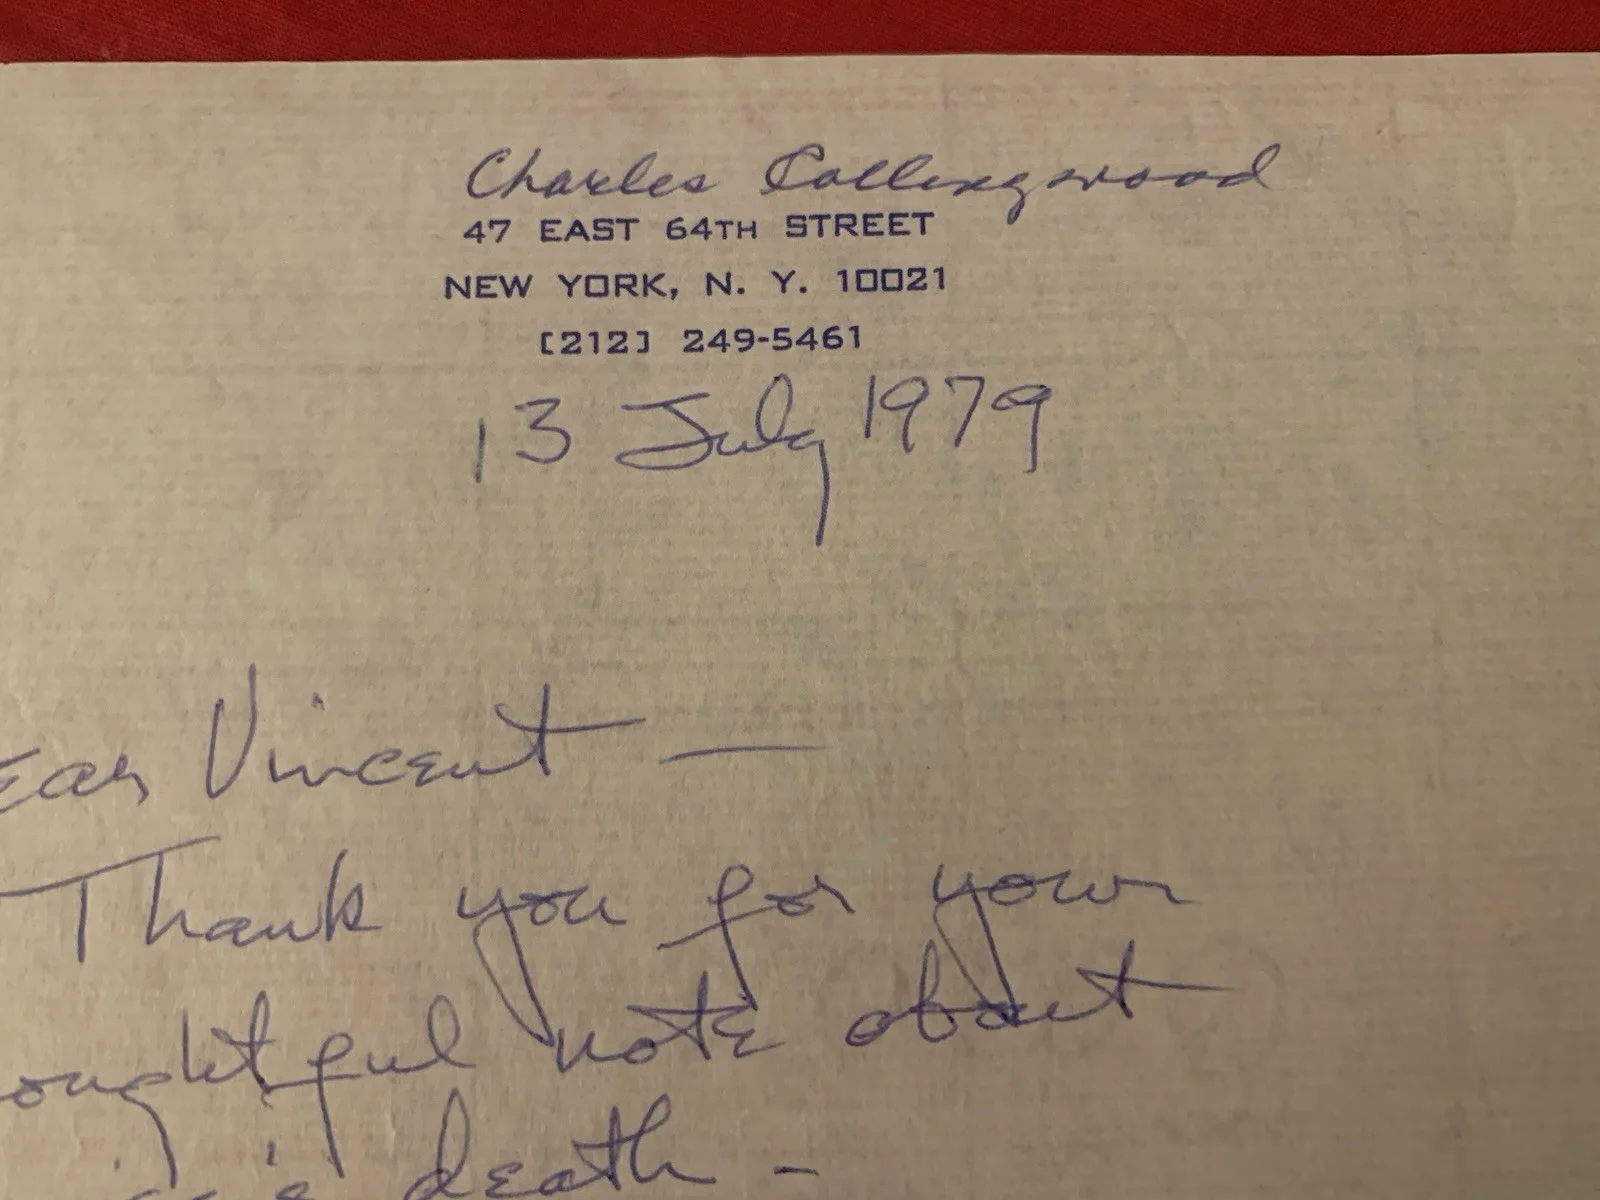 Charles Collingwood
47 EAST 64TH STREET
NEW YORK, N. Y. 10021
[212] 249-5461
13 July 1979
ear Vincent —
Thank you for your
oughtful note about
death -